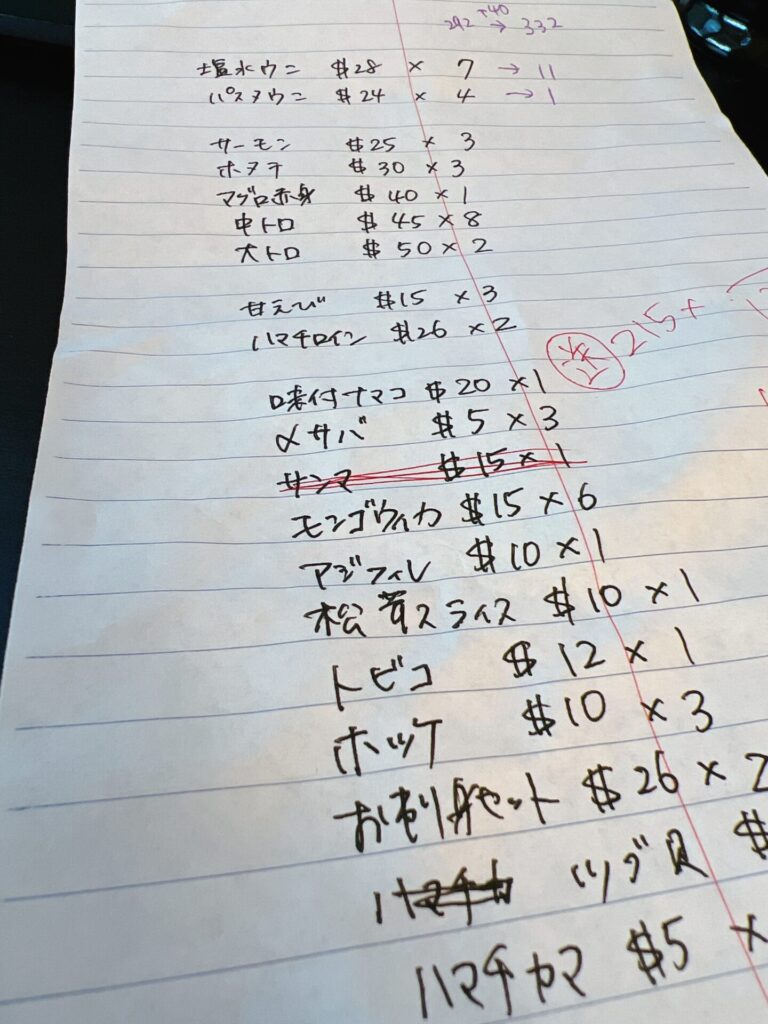 292 +40 → 332
塩水ウニ $28 × 7 → 11
パスタウニ $24 × 4 → 1
サーモン $25 × 3
ホタテ $30 × 3
マグロ赤身 $40 × 1
中トロ $45 × 8
大トロ $50 × 2
甘えび $15 × 3
ハマチロイン $26 × 2
215+
味付ナマコ $20 × 1
〆サバ $5 × 3
サンマ $15 × 1
モンゴウイカ $15 × 6
アジフィレ $10 × 1
松茸スライス $10 × 1
トビコ $12 × 1
ホッケ $10 × 3
お刺身セット $26 × 2
ツブ貝 $
ハマチカマ $5 ×